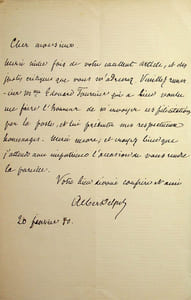 Cher monsieur
Merci mille fois de votre excellent article, et des
critiques que vous m'adressez. Veuillez remer-
cier Mme Edouard Fournier qui a bien voulu
me faire l'honneur de m'envoyer ses félicitations
par la poste, et lui présenter mes respectueux
hommages. Merci encore, et croyez bien que
j'attends avec impatience l'occasion de vous rendre
la pareille.
Votre bien dévoué confrère et ami
Albert Delpit
20 janvier 80.